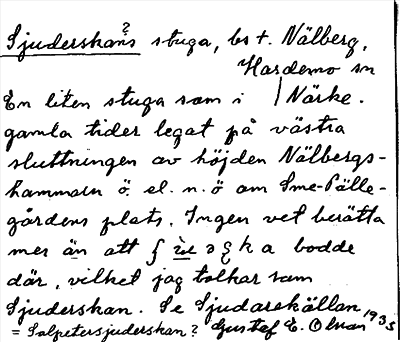 Sjuderskans? stuga, bs t. Nälberg,
Hardemo sn
En liten stuga som i | Närke.
gamla tider legat på västra
sluttningen av höjden Nälbergs-
hammaren ö. el. n.ö om Sme-Pälle-
gårdens plats. Ingen vet berätta
mer än att a bodde
där, vilket jag tolkar som
Sjuderskan. Se Sjudarekällan
= Salpetersjuderskan? Gustaf E. Olsson 1935